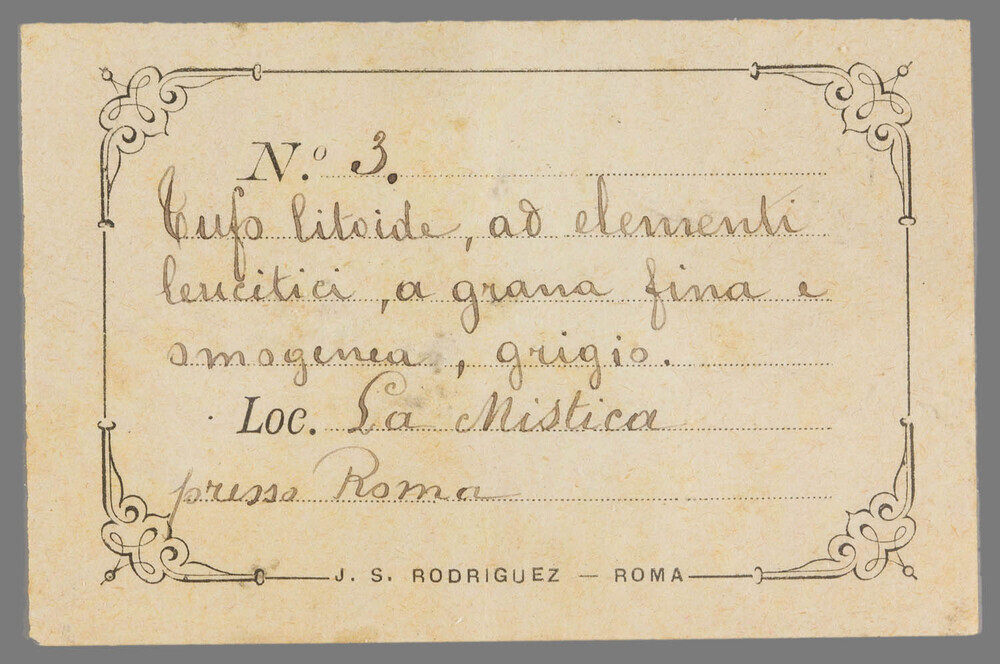 N.º 3.
Tufo litoide, ad elementi
leucitici, a grana fina e
omogenea, grigio.
Loc. La Mistica
presso Roma
J. S. RODRIGUEZ — ROMA